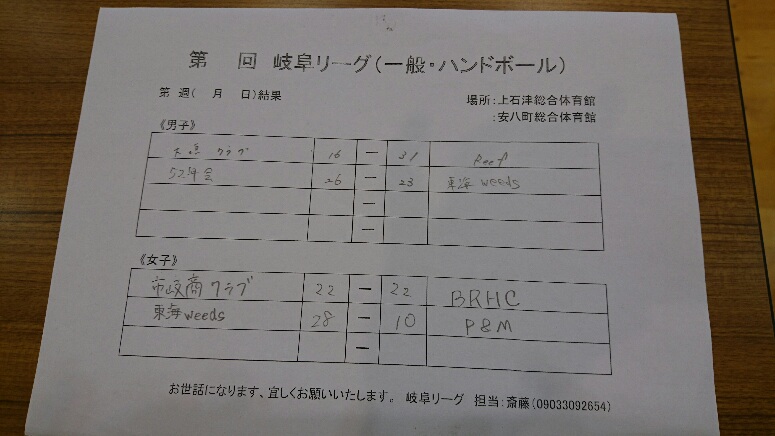 第 回 岐阜リーグ(一般・ハンドボール)
第 週( 月 日)結果
場所:上石津総合体育館
:安八町総合体育館
《男子》
クラブ 16 - 31 Reef
52年会 26 - 23 東海 weeds
-
-
《女子》
市岐商クラブ 22 - 22 BRHC
東海weeds 28 - 10 P&M
-
お世話になります、宜しくお願いいたします。 岐阜リーグ 担当:斎藤(09033092654)